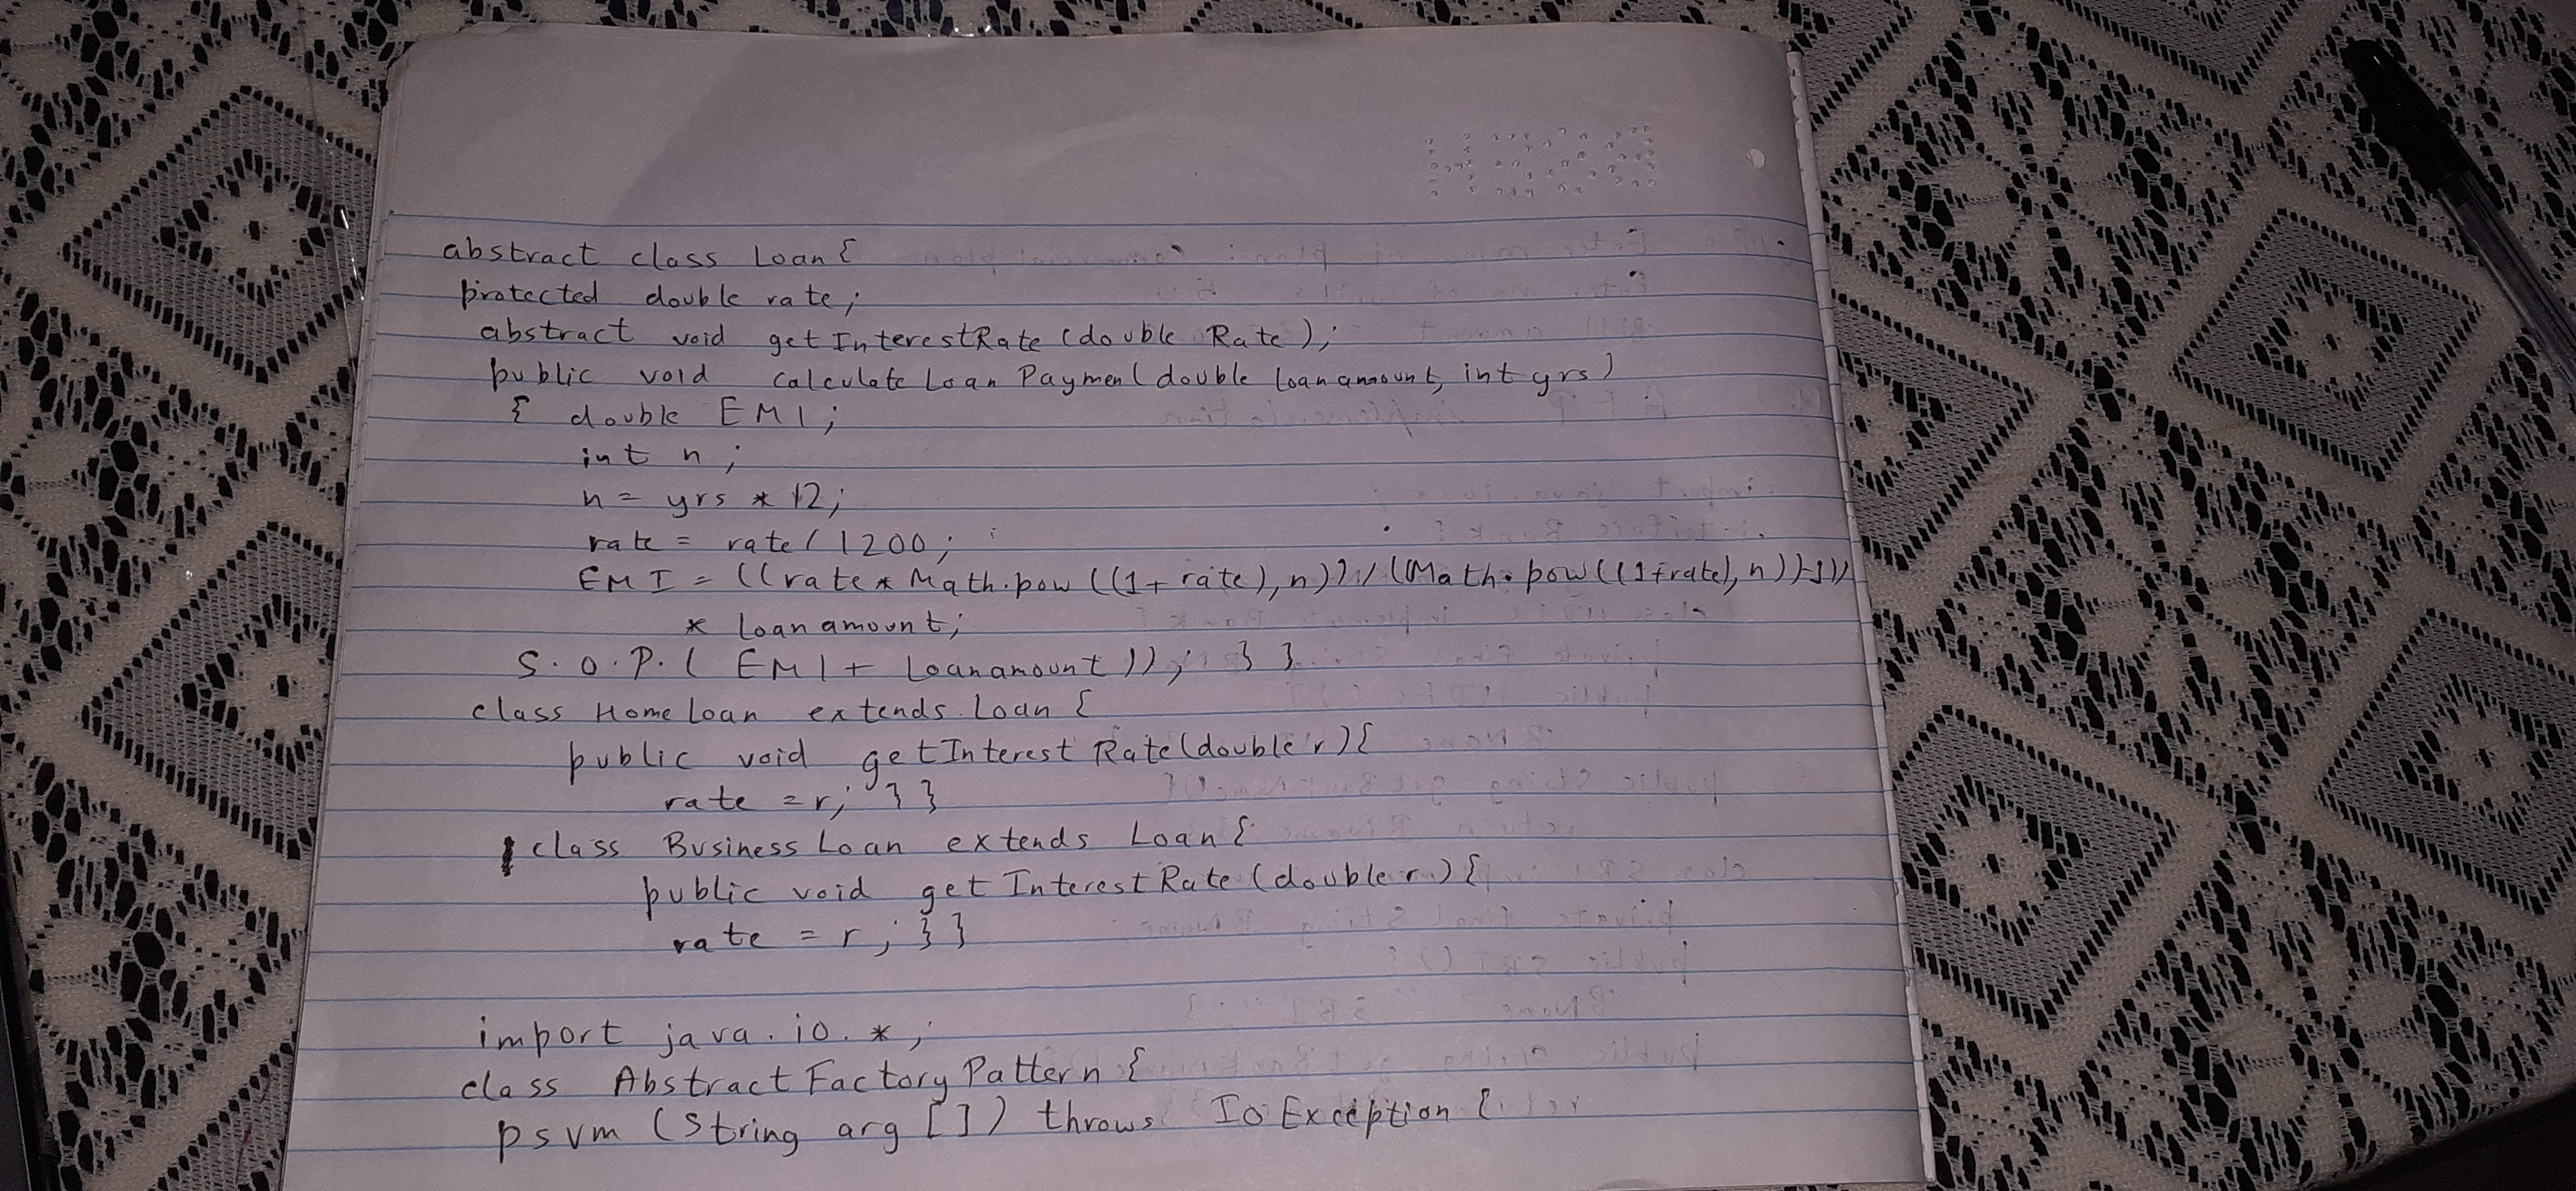 abstract class loan{
protected double rate;
abstract void getInterestRate (double Rate);
public void calculate loan Paymen(double loanamount, int yrs)
{ double EMI;
int n;
n = yrs * 12;
rate = rate/1200;
EMI = ((rate * Math.pow ((1+rate),n))/((Math.pow((1+rate),n))-1))
* loanamount;
S.O.P.( EMI + Loanamount)); } }
class Homeloan extends loan {
public void getInterestRate(double r){
rate = r; } }
class Business Loan extends Loan{
public void getInterestRate (double r){
rate = r; } }
import java.io.*;
class AbstractFactoryPattern {
psvm (String arg []) throws IoException {